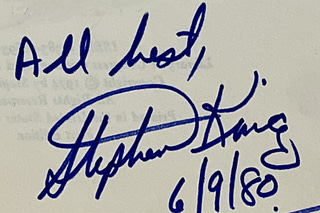 All best,
Stephen King
6/9/80